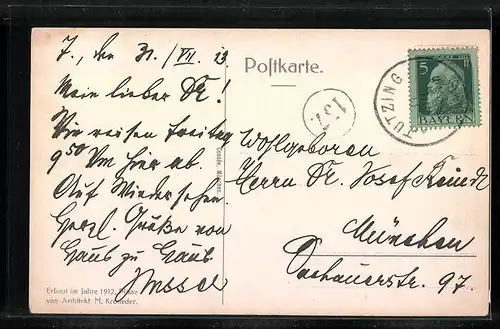 T., den 31./VII. 13.
Mein lieber Dr.!
Wir reisen Freitag
9 50 Vm hier ab.
Auf Wiedersehen.
Herzl. Grüße von
Haus zu Haus
Erbaut im Jahre 1912, Pläne
von Architekt M. Kroneder.
Postkarte.
151.
TUTZING
5
BAYERN
Wohlgeboren
Herrn Dr. Josef
München
Dachauerstr. 97.